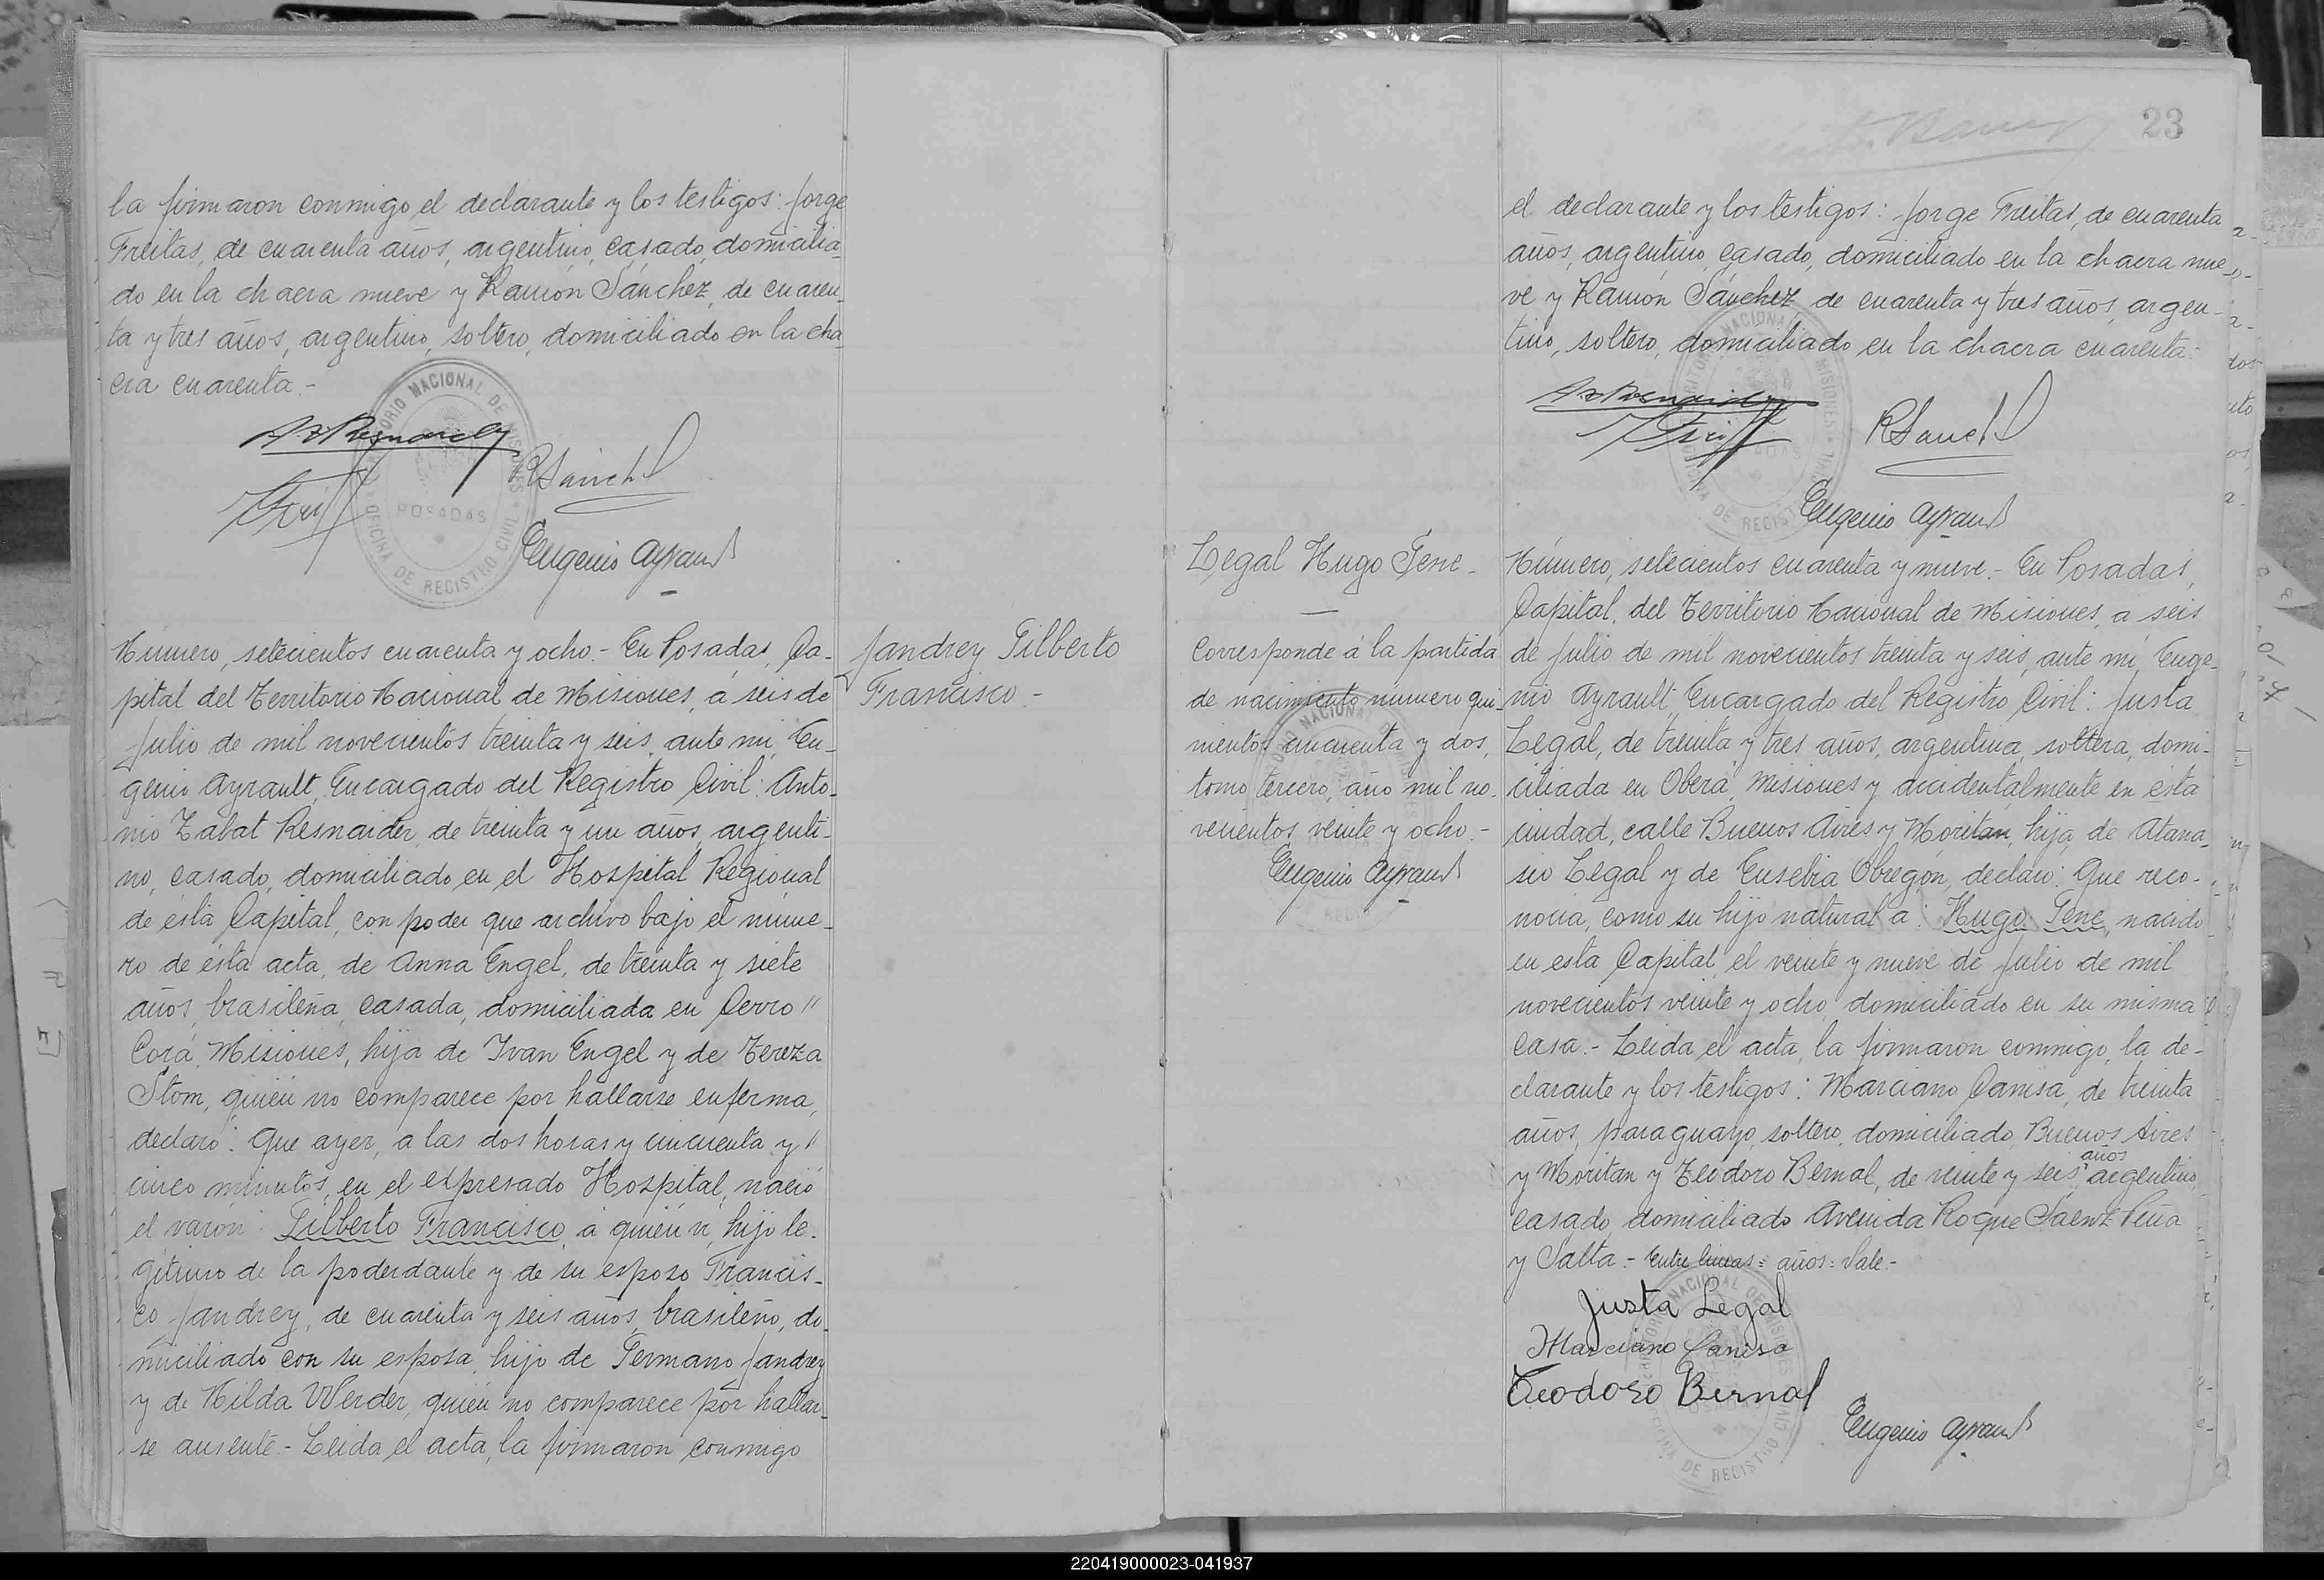 la firmaron conmigo el declarante y los testigos: Jorge
Freitas, de cuarenta años, argentino, casado, domicilia-
do en la chacra nueve y Ramón Sánchez, de cuaren-
ta y tres años, argentino, soltero, domiciliado en la cha-
cra cuarenta.-
TERRITORIO NACIONAL DE MISIONES
POSADAS
OFICINA DE REGISTRO CIVIL
RSanch
Eugenio Ayrault
Número, setecientos cuarenta y ocho.- En Posadas, Ca-
pital del Territorio Nacional de Misiones, á seis de
Julio de mil novecientos treinta y seis, ante mí, Eu-
genio Ayrault, Encargado del Registro Civil: Anto-
nio Zabat Resnaider, de treinta y un años, argenti-
no, casado, domiciliado en el Hospital Regional
de ésta Capital, con poder que archivo bajo el núme-
ro de ésta acta, de Anna Engel, de treinta y siete
años, brasileña, casada, domiciliada en Cerro "
Corá, Misiones, hija de Ivan Engel y de Tereza
Stom, quién no comparece por hallarse enferma,
declaró: Que ayer, a las dos horas y cincuenta y "
cinco minutos, en el expresado Hospital, nació
el varón: Gilberto Francisco, á quién ví, hijo le-
gítimo de la poderdante y de su esposo Francis-
co Jandrey, de cuarenta y seis años, brasileño, do-
miciliado con su esposa, hijo de Germano Jandrey
y de Hilda Werder, quién no comparece por hallar-
se ausente.- Leida el acta, la firmaron conmigo
Jandrey Gilberto
Francisco.-
23
el declarante y los testigos: Jorge Freitas, de cuarenta
años, argentino, casado, domiciliado en la chacra nue-
ve y Ramón Sánchez, de cuarenta y tres años, argen-
tino, soltero, domiciliado en la chacra cuarenta.-
RSanch
Eugenio Ayrault
Legal Hugo Gene-
Corresponde á la partida
de nacimiento número qui-
nientos cincuenta y dos,
tomo tercero, año mil no-
vecientos veinte y ocho.-
Eugenio Ayrault
Número, setecientos cuarenta y nueve.- En Posadas,
Capital, del Territorio Nacional de Misiones, á seis
de Julio de mil novecientos treinta y seis, ante mí, Euge-
nio Ayrault, Encargado del Registro Civil: Justa
Legal, de treinta y tres años, argentina, soltera, domi-
ciliada en Oberá, Misiones y accidentalmente en ésta
ciudad, calle Buenos Aires y Moritan, hija de Atana-
sio Legal y de Eusebia Obregón, declaró: Que reco-
nocía, como su hijo natural a: Hugo Gene, nacido
en esta Capital, el veinte y nueve de Julio de mil
novecientos veinte y ocho, domiciliado en su misma
casa.- Leida el acta, la firmaron conmigo, la de-
clarante y los testigos: Marciano Canisa, de treinta
años, paraguayo, soltero, domiciliado, Buenos Aires
y Moritan y Teodoro Bernal, de veinte y seis años argentino,
casado, domiciliado Avenida Roque Saenz Peña
y Salta.- Entre líneas = años = Vale.-
Justa Legal
Marciano Canisa
Teodoro Bernal
Eugenio Ayrault
220419000023-041937